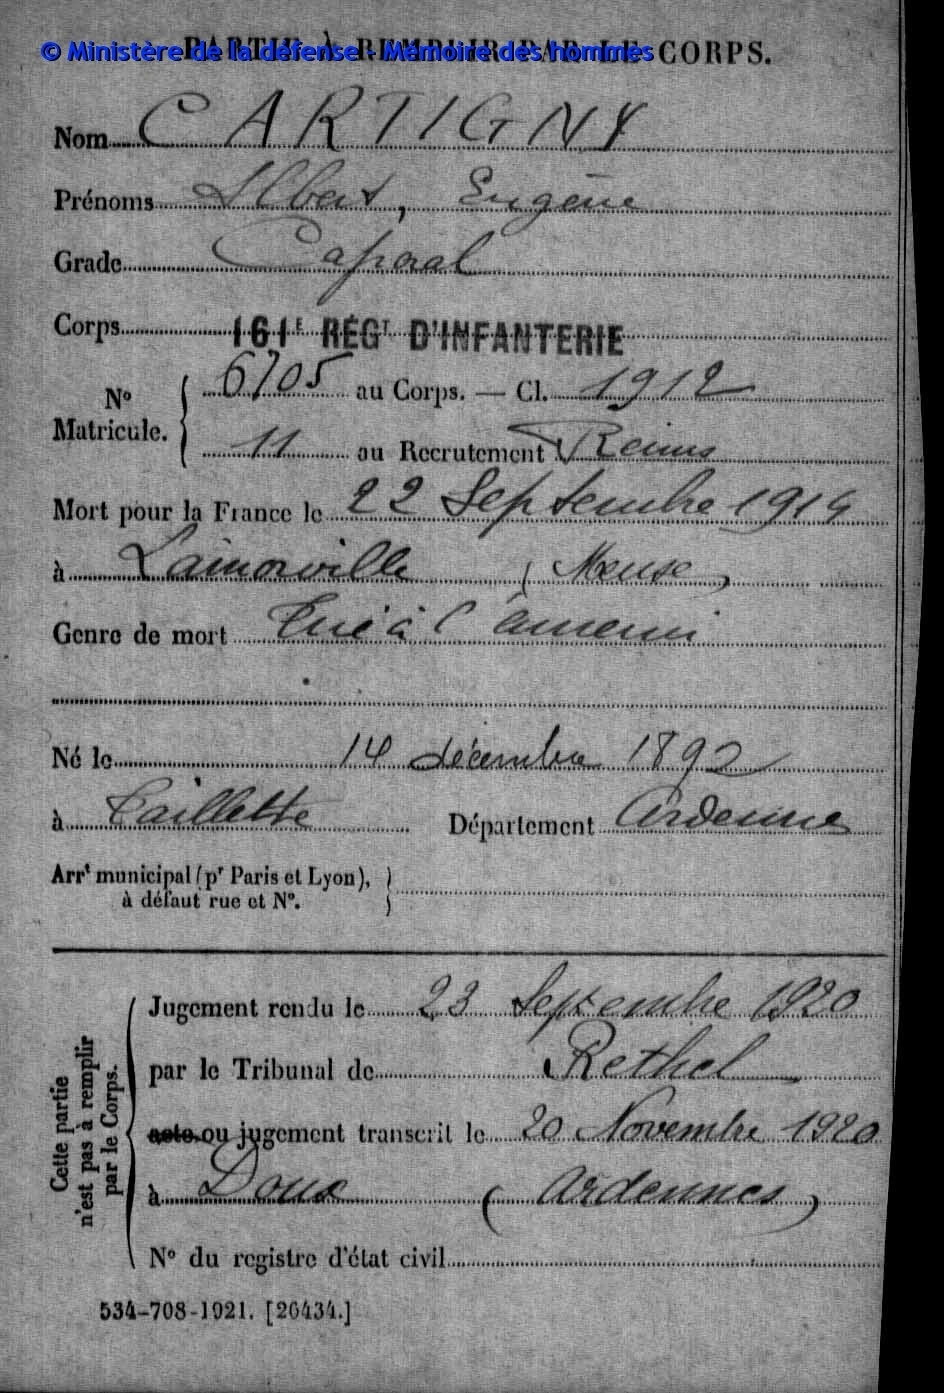 PARTIE À REMPLIR PAR LE CORPS.
© Ministère de la défense - Mémoire des hommes
Nom CARTIGNY
Prénoms Albert, Eugène
Grade Caporal
Corps 161E RÉGT D'INFANTERIE
No Matricule. { 6705 au Corps. — Cl. 1912
11 au Recrutement Reims
Mort pour la France le 22 Septembre 1914
à Lamorville (Meuse)
Genre de mort Tué à l'ennemi
Né le 14 décembre 1892
à Taillette Département Ardennes
Arrt municipal (pr Paris et Lyon), }
à défaut rue et No.
Cette partie
n'est pas à remplir
par le Corps.
Jugement rendu le 23 Septembre 1920
par le Tribunal de Rethel
acte ou jugement transcrit le 20 Novembre 1920
à Doux (Ardennes)
No du registre d'état civil
534-708-1921. [26434.]